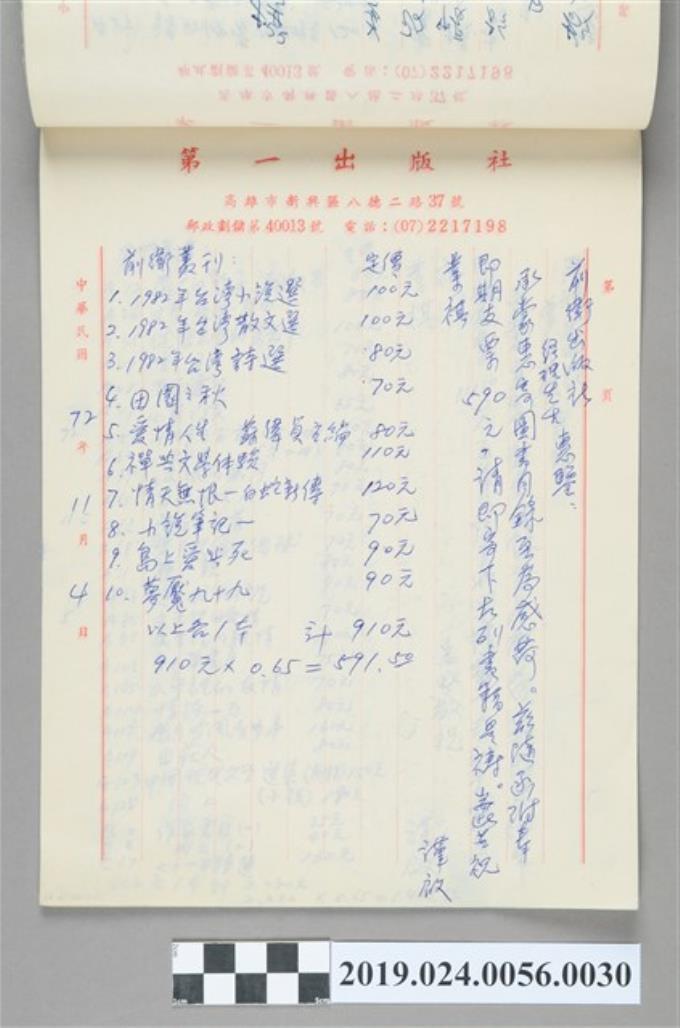 第一出版社
高雄市新興區八德二路37號
郵政劃儲第40013號 電話:(07)2217198
第 頁
前衛出版社
經理先生 惠鑒:
承蒙惠寄圖書目錄至為感荷。茲隨函附奉
即期支票590元。請即寄下右列書籍是禱。耑此 共祝
業祺
謹啟
前衛叢刊: 定價
1. 1982年台湾小說選 100元
2. 1982年台湾散文選 100元
3. 1982年台湾詩選 80元
4. 田園之秋 70元
5. 愛情人生 蘇偉貞主編 80元
6. 禪與文學体驗 110元
7. 情天無恨—白蛇新傳 120元
8. 小說筆記一 70元
9. 島上愛與死 90元
10. 夢魘九十九 90元
以上各1本 計 910元
910元×0.65=591.50
中華民國72年11月4日
2019.024.0056.0030